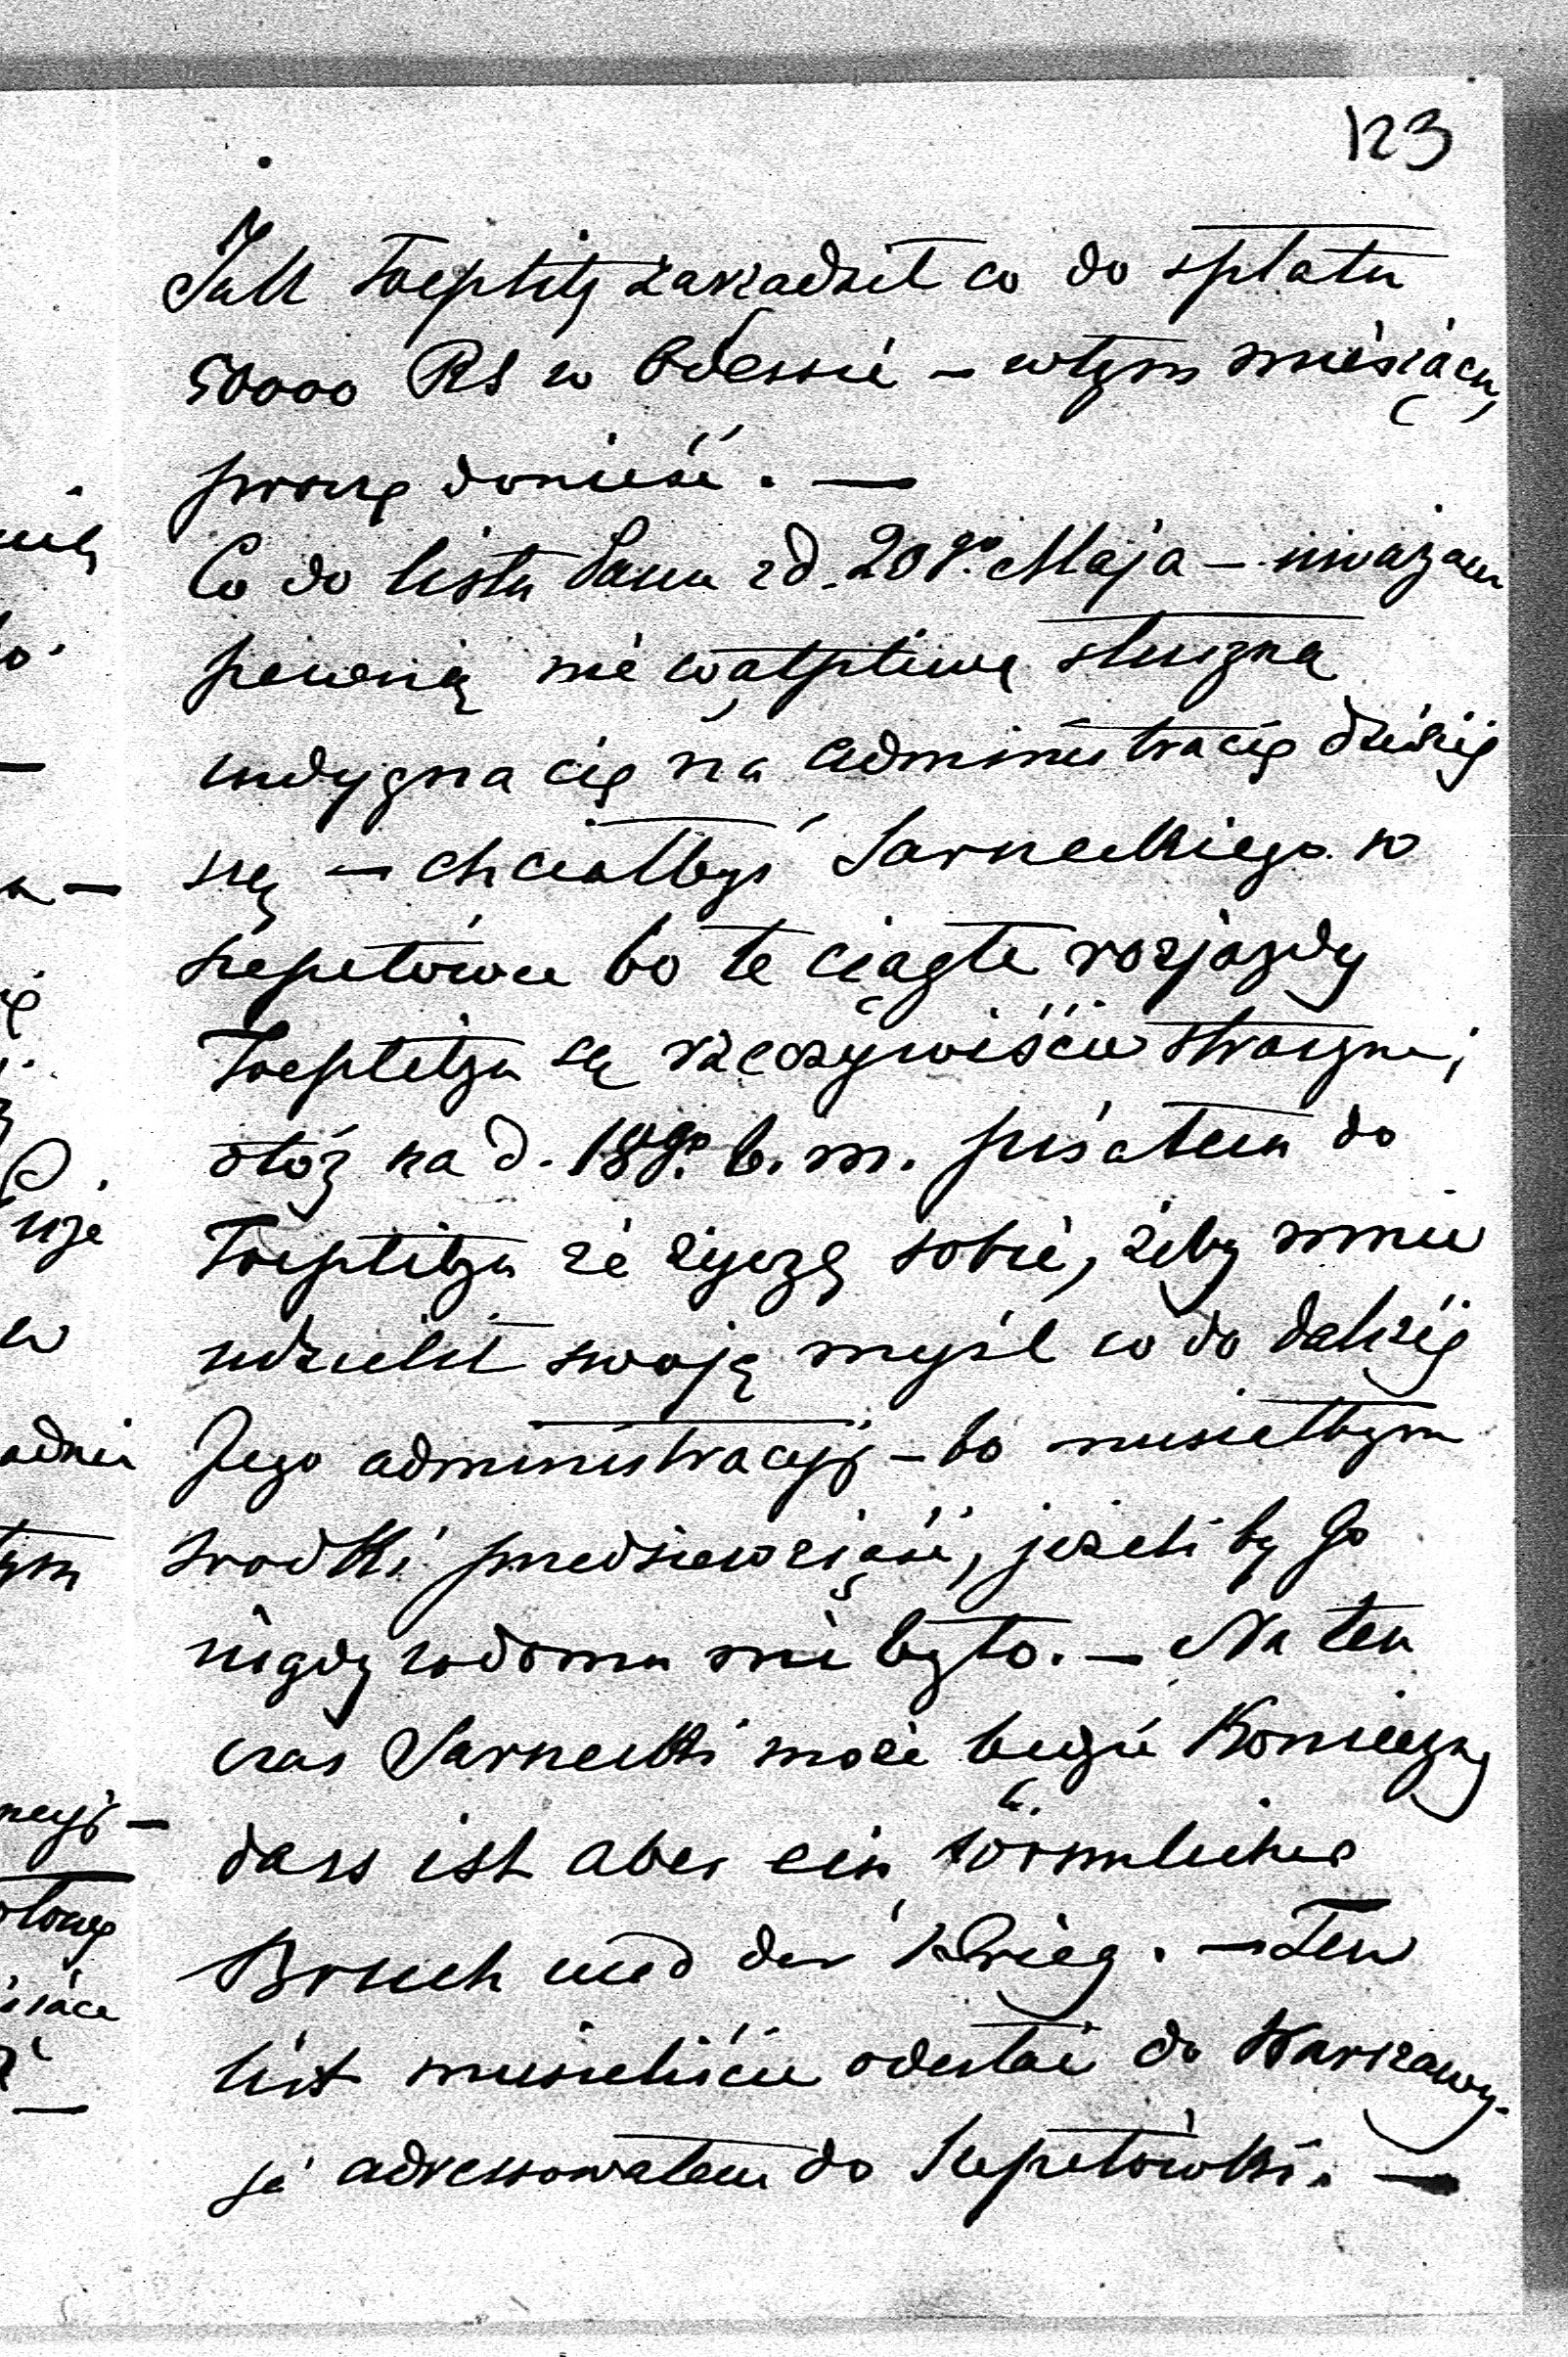 123
Jak Toeplitz zaradził co do spłatu
50000 RS w Odessie – w tym miesiącu,
proszę donieść. —
Co do listu Pana z d. 20go Maja – uważam
pewną nie wątpliwą słuszną
indygnacię na administracię dzisiej
szę — chciałbyś Sarneckiego w
Szepetówce bo te ciągłe rozjazdy
Toeplitza są rzeczywiście straszne;
otóż na d. 18go b. m. pisałem do
Toeplitza że życzę sobie, żeby mnie
udzielił swoję myśl co do dalszej
Jego administracyi – bo musiałbym
srodki przedsiewziąść, jeżeli by Go
nigdy w domu nie było. — Na ten
czas Sarnecki może będzie Konieczny
dass ist aber ein förmlicher
Bruch und der Krieg. — Ten
list musieliście odesłać do Warszawy.
ja adressowałem do Szepetówki. —
uje
adnia
tym